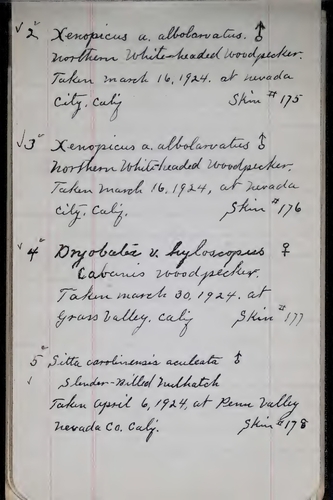 √ 2" Xenopicus a. albolarvatus. ♂
Northern White-headed Woodpecker.
Taken March 16, 1924. at Nevada
City, Calif Skin # 175
√ 3" Xenopicus a. albolarvatus ♂
Northern White-headed Woodpecker.
Taken March 16, 1924, at Nevada
City, Calif. Skin # 176
√ 4" Dryobates v. hyloscopus ♀
Cabanis woodpecker.
Taken March 30, 1924. at
Grass Valley, Calif Skin # 177
5" Sitta carolinensis aculeata ♂
1 Slender-billed Nuthatch
Taken April 6, 1924, at Penn Valley
Nevada Co. Calif. Skin # 178